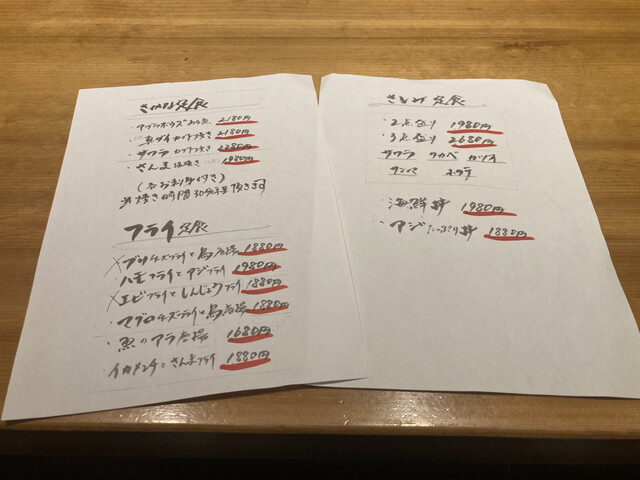 さかな定食
2180円
2180円
サワラ カブト焼き 2280円
さんま塩焼き 1980円
(各お刺身付き)
焼き時間30分程頂きます
フライ定食
ブリチーズフライと鳥唐揚 1880円
ハモフライとアジフライ 1980円
エビフライとしんじょうフライ 1880円
マグロチーズフライと鳥唐揚 1880円
魚のアラ唐揚 1680円
イカメンチとさんまフライ 1880円
さしみ定食
・2点盛り 1980円
・3点盛り 2680円
サワラ ワカメ カツオ
サンマ ホタテ
・海鮮丼 1980円
・アジたっぷり丼 1880円